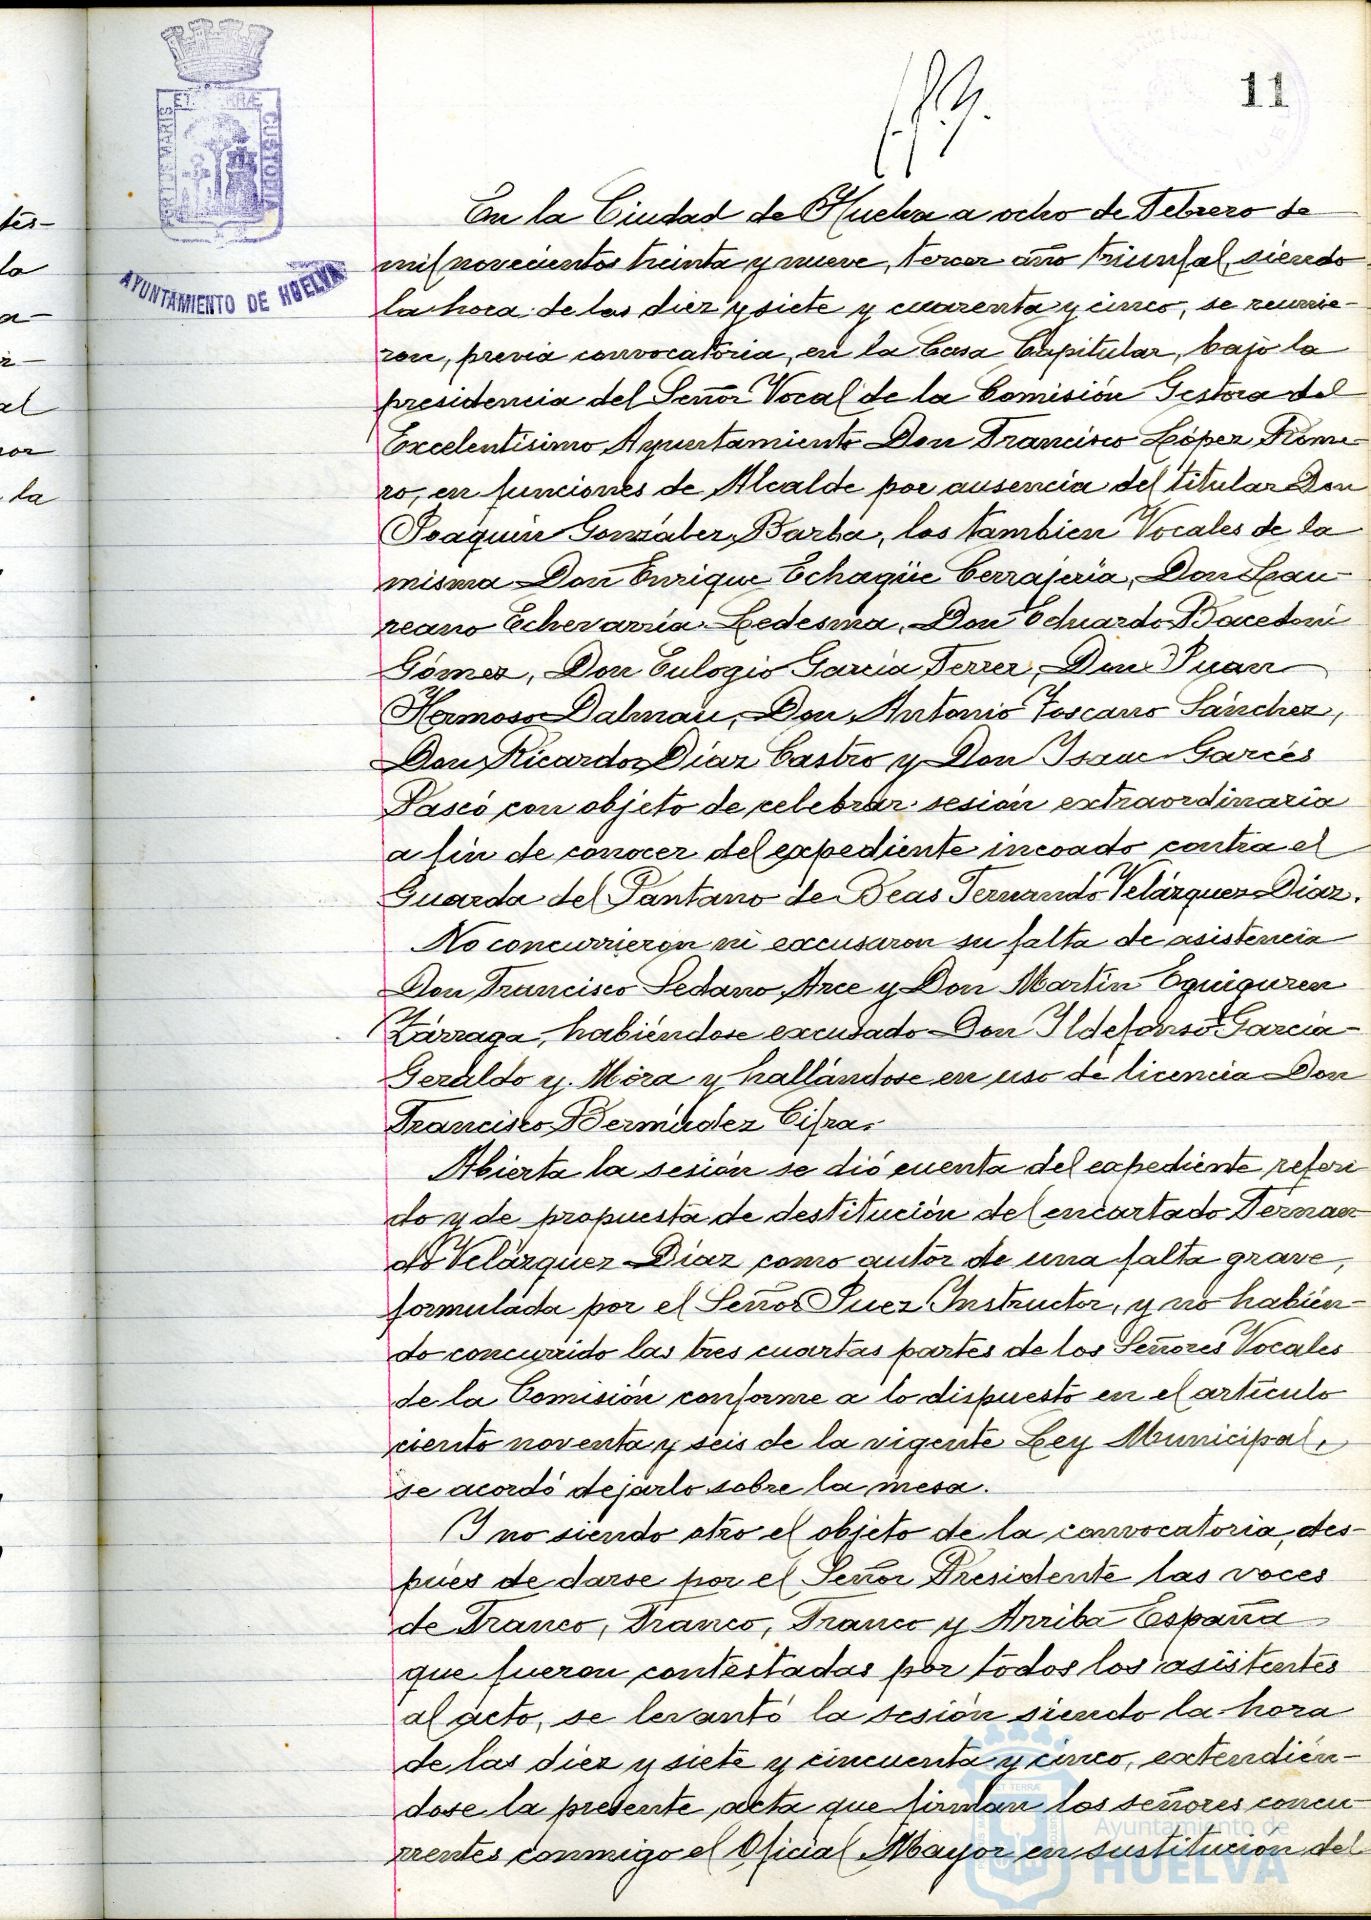 11
PORTUS MARIS ET TERRÆ CUSTODIA
AYUNTAMIENTO DE HUELVA
En la Ciudad de Huelva a ocho de Febrero de
mil novecientos treinta y nueve, tercer año triunfal, siendo
la hora de las diez y siete y cuarenta y cinco, se reunie-
ron, previa convocatoria, en la Casa Capitular, bajo la
presidencia del Señor Vocal de la Comisión Gestora del
Excelentísimo Ayuntamiento Don Francisco López Rome-
ro, en funciones de Alcalde por ausencia del titular Don
Joaquín González Barba, los tambien Vocales de la
misma Don Enrique Echagüe Cerrajería, Don Lau-
reano Echevarría Ledesma, Don Eduardo Bacedoni
Gómez, Don Eulogio García Ferrer, Don Juan
Hermoso Dalmau, Don Antonio Toscano Sánchez,
Don Ricardo Díaz Castro y Don Isaac Garcés
Pascó con objeto de celebrar sesión extraordinaria
a fín de conocer del expediente incoado contra el
Guarda del Pantano de Beas Fernando Velázquez Díaz.
No concurrieron ni excusaron su falta de asistencia
Don Francisco Sedano Arce y Don Martín Eguiguren
Zárraga, habiéndose excusado Don Ildefonso García-
Geraldo y Mora y hallándose en uso de licencia Don
Francisco Bermúdez Cifra.
Abierta la sesión se dió cuenta del expediente referi
do y de propuesta de destitución del encartado Fernan-
do Velázquez Díaz como autor de una falta grave,
formulada por el Señor Juez Instructor, y no habién-
do concurrido las tres cuartas partes de los Señores Vocales
de la Comisión conforme a lo dispuesto en el artículo
ciento noventa y seis de la vigente Ley Municipal,
se acordó dejarlo sobre la mesa.
Y no siendo otro el objeto de la convocatoria, des-
pués de darse por el Señor Presidente las voces
de Franco, Franco, Franco y Arriba España
que fueron contestadas por todos los asistentes
al acto, se levantó la sesión siendo la hora
de las diez y siete y cincuenta y cinco, extendién-
dose la presente acta que firman los señores concu-
rrentes conmigo el Oficial Mayor en sustitución del
Ayuntamiento de
HUELVA